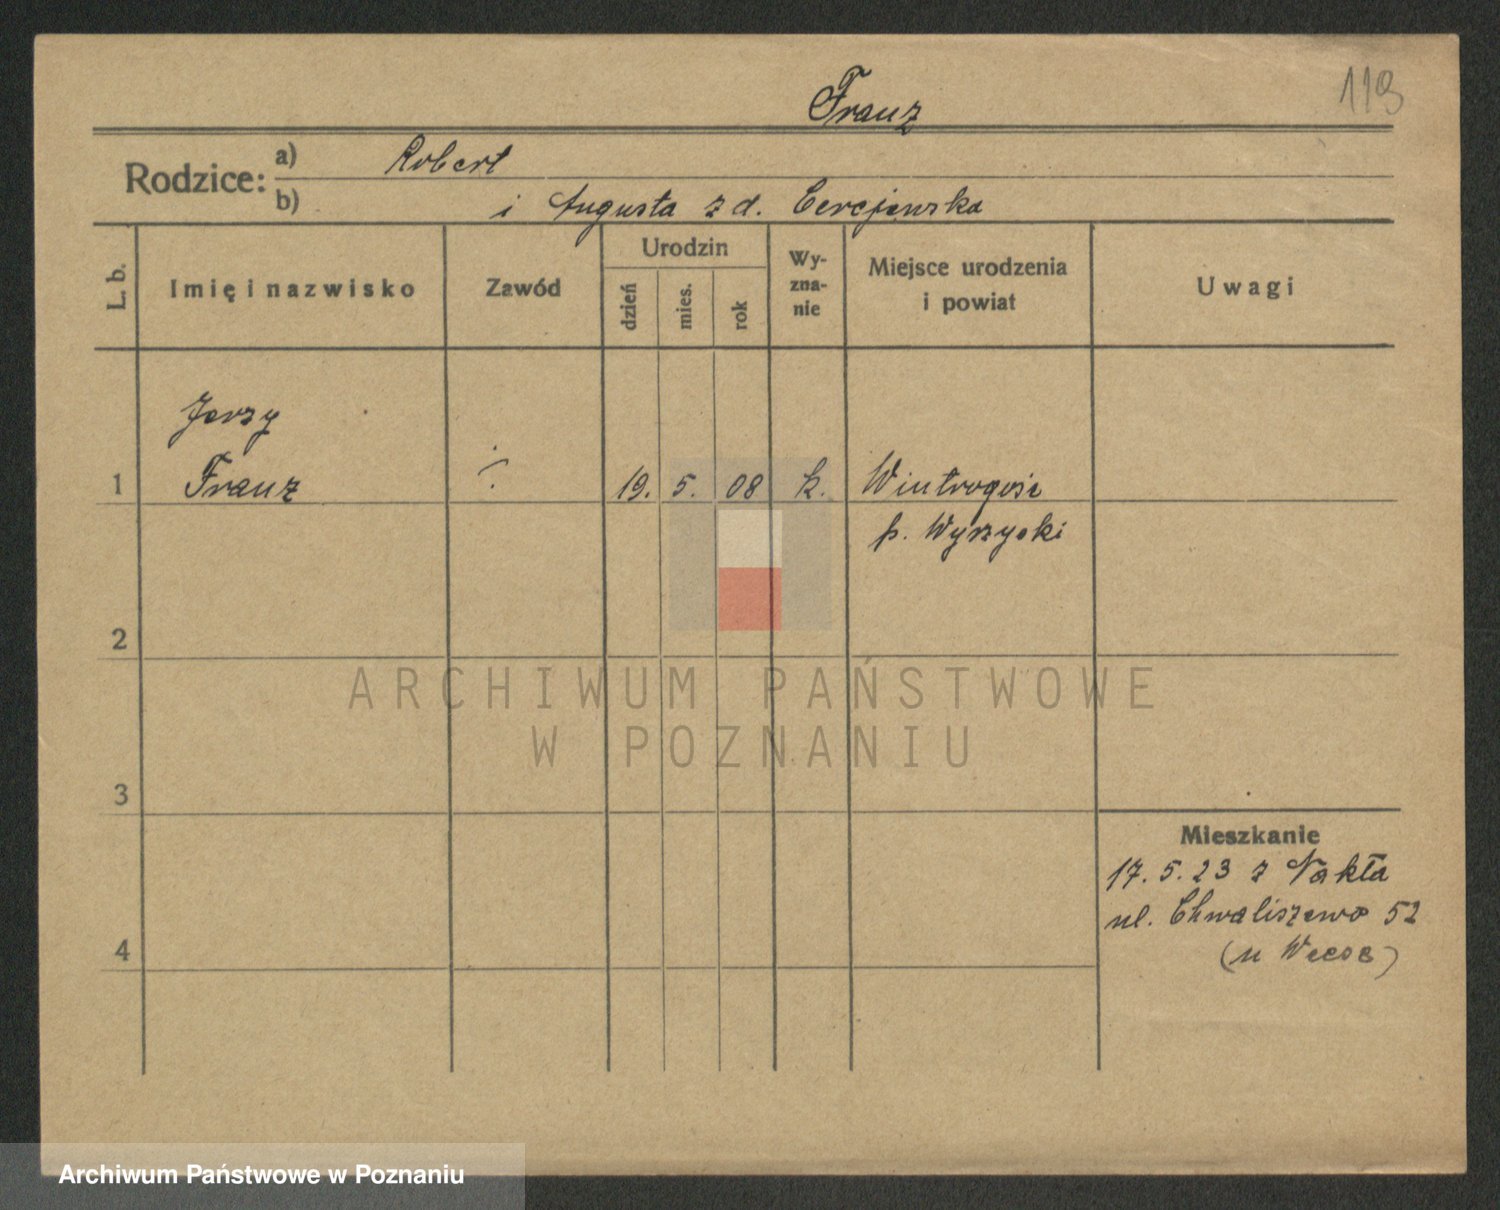 Franz
119
Rodzice:
a) Robert
b) i Augusta z d. Cerejewska
L. b.
Imię i nazwisko
Zawód
Urodzin
dzień
mies.
rok
Wy-
zna-
nie
Miejsce urodzenia
i powiat
Uwagi
Jerzy
1 Franz ÷ 19. 5. 08 k. Wintrogość
p. Wyrzycki
2
3
4
Mieszkanie
17.5.23 z Nakła
ul. Chwaliszewo 52
(u
ARCHIWUM PAŃSTWOWE
W POZNANIU
Archiwum Państwowe w Poznaniu